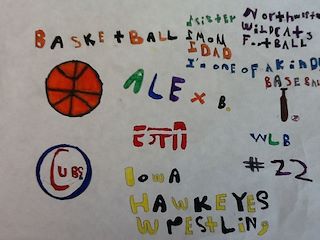 1 SISTER
1 MOM
1 DAD
Northwestern
Wildcats
Football
BASKEtBALL
I'm one of A kind
BASEBALL
ALEx B.
WLB
#22
CUBS
Iowa
HAWKEYES
WrEStLIng